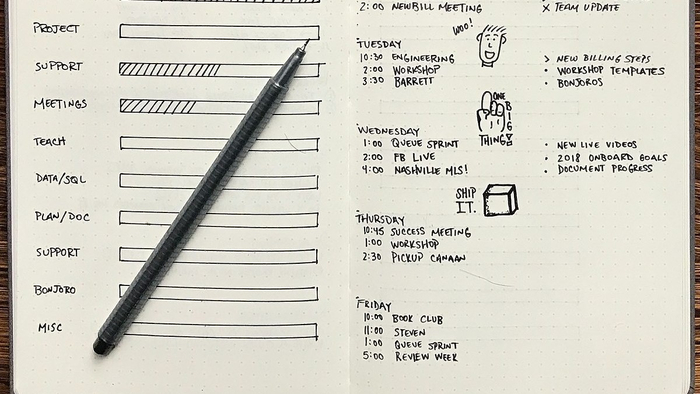 PROJECT
SUPPORT
MEETINGS
TEACH
DATA/SQL
PLAN/DOC
SUPPORT
BONJORO
MISC
2:00 NEWBILL MEETING
X TEAM UPDATE
WOO!
TUESDAY
10:30 ENGINEERING
2:00 WORKSHOP
3:30 BARRETT
> NEW BILLING STEPS
• WORKSHOP TEMPLATES
• BONJOROS
ONE
BIG
THING
WEDNESDAY
1:00 QUEUE SPRINT
2:00 FB LIVE
4:00 NASHVILLE MLS!
• NEW LIVE VIDEOS
• 2018 ONBOARD GOALS
• DOCUMENT PROGRESS
SHIP
IT.
THURSDAY
10:45 SUCCESS MEETING
1:00 WORKSHOP
2:30 PICKUP CANAAN
FRIDAY
10:00 BOOK CLUB
11:00 STEVEN
1:00 QUEUE SPRINT
5:00 REVIEW WEEK